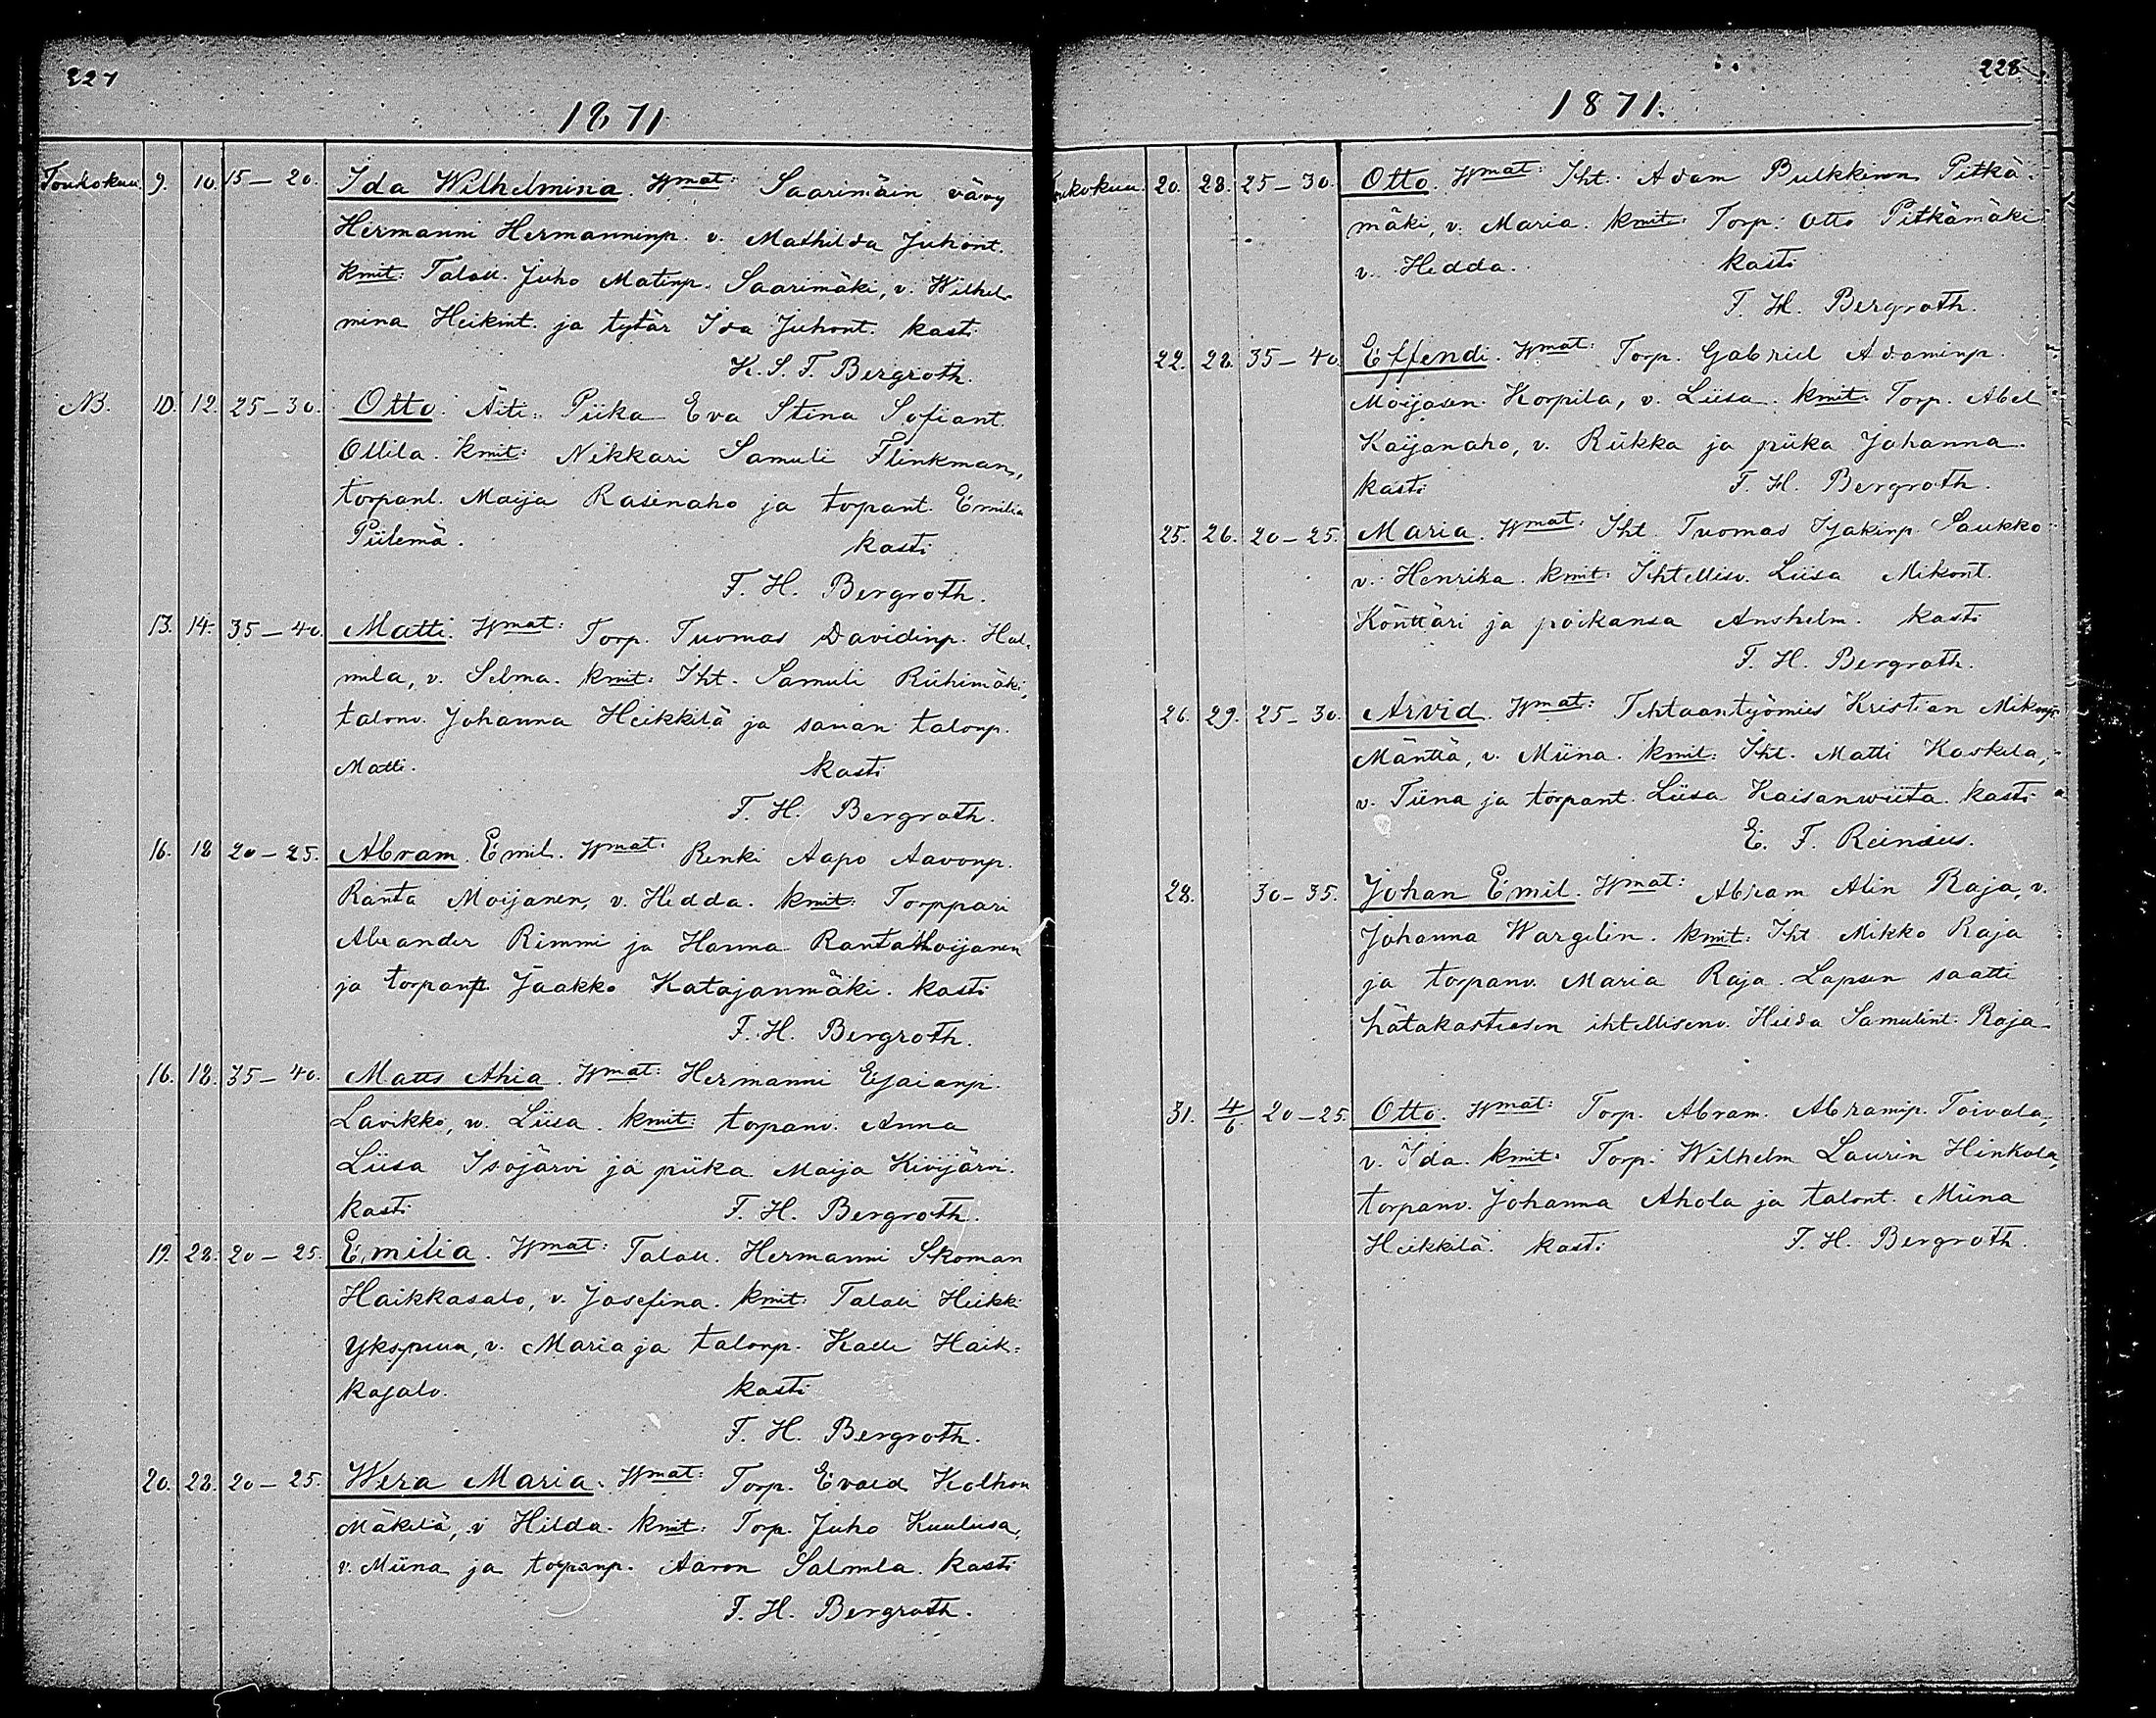 227
1871
Toukokuu 9. 10. 15–20. Ida Wilhelmina. Wmat: Saarimäin vävy
Hermanni Hermanninp. v. Mathilda Juhont.
kmit: Talall. Juho Matinp. Saarimäki, v. Wilhel-
mina Heikint. ja tytär Ida Juhont. kasti
K. S. F. Bergroth.
NB. 10. 12. 25–30. Otto. Äiti: Piika Eva Stina Sofiant.
Ollila. kmit: Nikkari Samuli Flinkman,
torpanl. Maija Rasinaho ja torpant. Emilia
Piilemä. kasti
F. H. Bergroth.
13. 14. 35–40. Matti. Wmat: Torp. Tuomas Davidinp. Hal-
mila, v. Selma. kmit: Iht. Samuli Riihimäki,
talonv. Johanna Heikkilä ja saman talonp.
Matti. kasti
F. H. Bergroth.
16. 18 20–25. Abram Emil. Wmat: Renki Aapo Aavonp.
Ranta Moijanen, v. Hedda. kmit: Torppari
Rimmi ja Hanna Rantamoijanen
ja torpanp. Jaakko Katajanmäki. kasti
F. H. Bergroth.
16. 18. 35–40. Matts Ahia. Wmat: Hermanni Esaianp.
Lavikko, v. Liisa. kmit: torpanv. Anna
Liisa Isojärvi ja piika Maija Kivijärvi.
kasti F. H. Bergroth.
19. 28. 20–25. Emilia. Wmat: Talall. Hermanni Skoman
Haikkasalo, v. Josefina. kmit: Talall Heikki
Ykspuun, v. Maria ja talonp. Kalle Haik-
kasalo. kasti
F. H. Bergroth.
20. 28. 20–25. Wera Maria. Wmat: Torp. Evald Kolhon
Mäkelä, v Hilda. kmit: Torp. Juho Kuulusa,
v. Miina ja torpanp. Aaron Salmela. kasti
F. H. Bergroth.
228
1871.
Toukokuu 20. 28. 25–30. Otto. Wmat: Iht. Adam Pulkkinen Pitkä-
mäki, v. Maria. kmit: Torp: Otto Pitkämäki
v. Hedda. kasti
F. H. Bergroth.
22. 28. 35–40. Effendi. Wmat: Torp. Gabriel Adaminp.
Moijasen Korpila, v. Liisa. kmit: Torp. Abel
Kaijanaho, v. Riikka ja piika Johanna.
kasti F. H. Bergroth.
25. 26. 20–25. Maria. Wmat: Iht. Tuomas Isakinp. Saukko
v. Henrika. kmit: Ihtellisv. Liisa Mikont.
Könttäri ja poikansa Anshelm. kasti
F. H. Bergroth.
26. 29. 25–30. Arvid. Wmat: Tehtaantyömies Kristian Mikonp
Mänttä, v. Miina. kmit: Iht. Matti Koskela,
v. Tiina ja torpant. Liisa Kaisanwiita. kasti
E. F. Reinius.
28. 30–35. Johan Emil. Wmat: Abram Alin Raja, v.
Johanna Wargelin. kmit: Iht Mikko Raja
ja torpanv. Maria Raja. Lapsen saatti
hätäkasteesen ihtellisenv. Heeda Samulint. Raja
31. 4/6 20–25. Otto. Wmat: Torp. Abram. Abramip. Toivola,
v. Ida. kmit: Torp. Wilhelm Laurin Hinkola,
torpanv. Johanna Ahola ja talont. Miina
Heikkilä. kasti F. H. Bergroth.